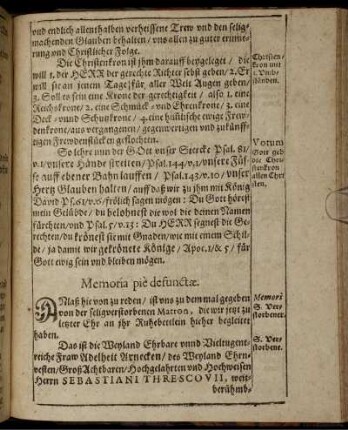 vnd endlich allenthalben verheissene Trew vnd den selig-
machenden Glauben behalten / vns allen zu guter erinne-
rung vnd Christlicher Folge.
Die Christenkron ist jhm darauff beygeleget / die
will 1. der HERR der gerechte Richter selbst geben / 2. Er
will sie an jenem Tage / für aller Welt Augen geben /
3. Soll es sein eine Krone der gerechtigkeit / also 1. eine
Reichskrone / 2. eine Schmück- vnd Ehrenkrone / 3. eine
Deck- vnnd Schutzkrone / 4. eine hüpsche ewige Frew-
denkrone / aus vergangenen / gegenwertigen vnd zukünff-
tigen Frewdenstücken geflochten.
Christen-
kron mit
ständen.
So lehre nun der GOtt vnser Stercke Psal. 81/
v.1/ vnsere Hände streiten / Psal. 144/ v.1/ vnsere Füs-
se auff ebener Bahn lauffen / Psal. 143/ v.10/ vnser
Hertz Glauben halten / auff daß wir zu jhm mit König
David Ps. 61/ v.6/ frölich sagen mögen: Du Gott hörest
mein Gelübde / du belohnest die wol die deinen Namen
fürchten / vnd Psal. 5/ v.13: Du HERR segnest die Ge-
rechten / du krönest sie mit Gnaden / wie mit einem Schil-
de / ja damit wir gekrönete Könige / Apoc. 1/ & 5/ für
Gott ewig sein vnd bleiben mögen.
Votum
Gott geb
die Chri-
stenkron
allen Chri
sten.
Memoria piè defunctæ.
ANlaß hie von zu reden / ist vns zu dem mal gegeben
von der seligverstorbenen Matron, die wir jetzt zu
letzter Ehr an jhr Ruhebettlein hieher begleitet
haben.
Memori
S. Ver-
storbener.
Das ist die Weyland Ehrbare vnnd Vieltugent-
reiche Fraw Adelheit Arnecken / des Weyland Ehrn-
vesten / Groß Achtbaren / Hochgelahrten vnd Hochweisen
Herrn SEBASTIANI THRESCOVII, weit-
berühmb-
S. Ver-
storbene.